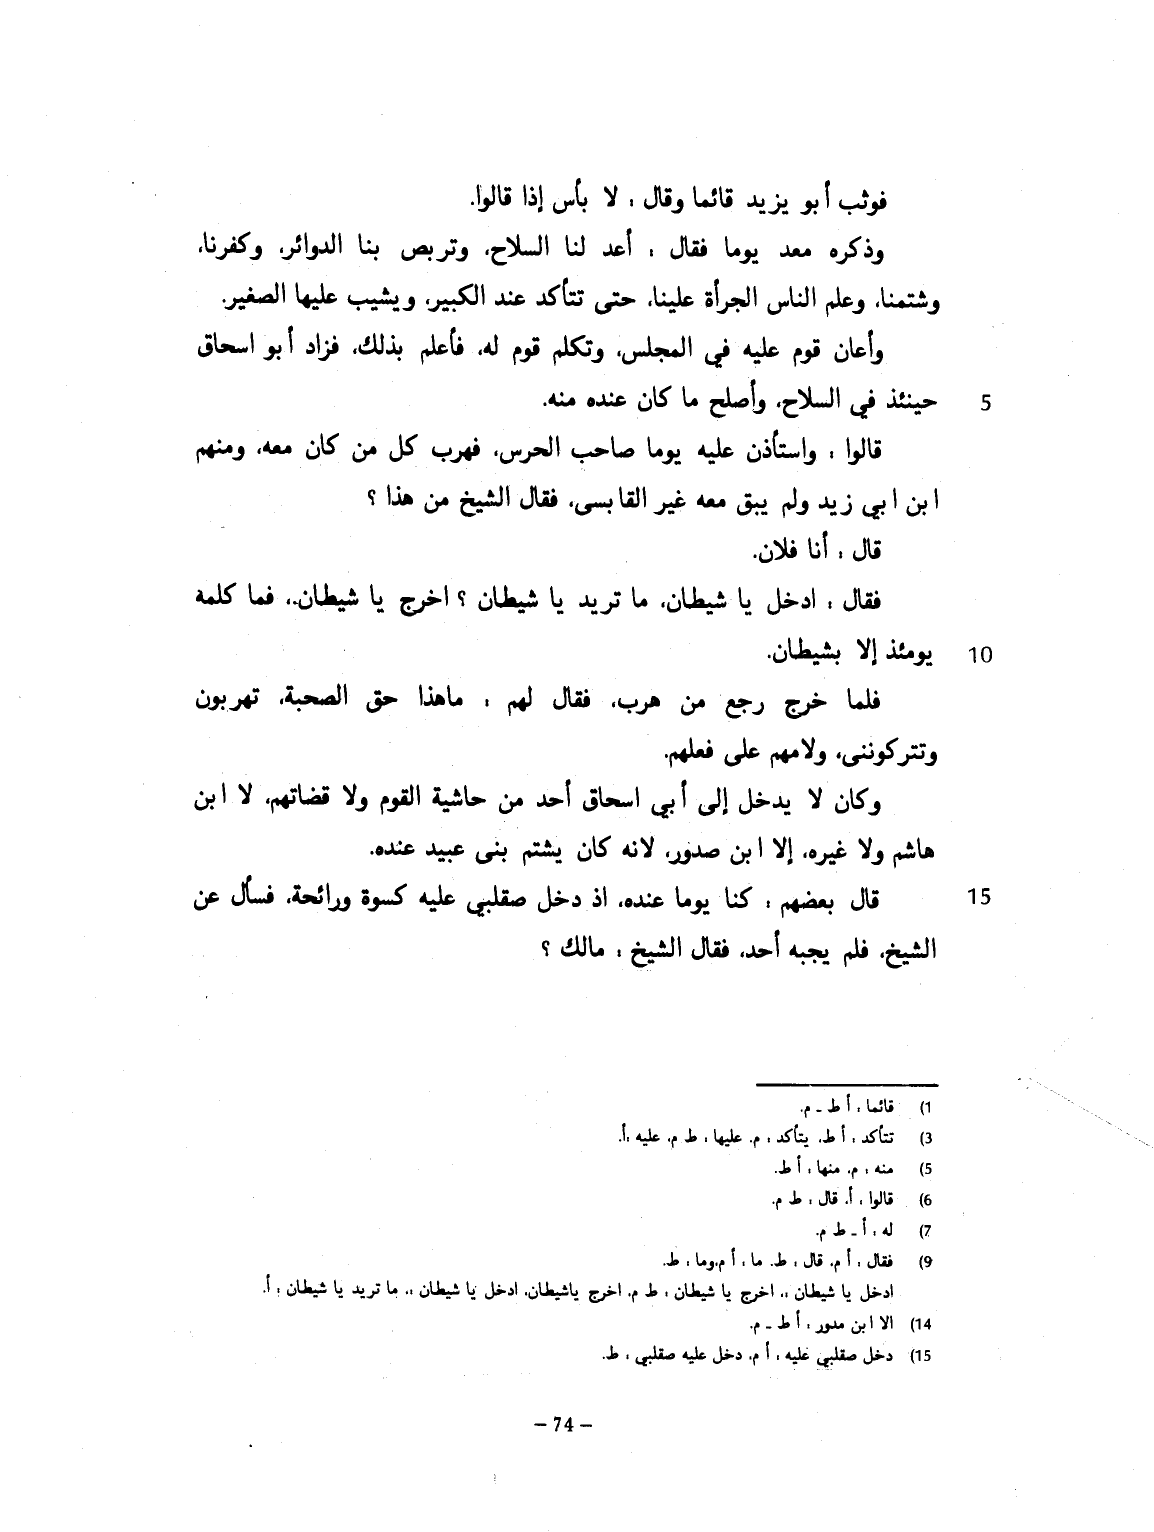 فوثب أبو يزيد قائما وقال : لا بأس إذا قالوا.
وذكره معد يوما فقال : أعد لنا السلاح، وتربص بنا الدوائر، وكفرنا،
وشتمنا، وعلم الناس الجرأة علينا، حتى تتأكد عند الكبير، ويشيب عليها الصغير.
وأعان قوم عليه في المجلس، وتكلم قوم له، فأعلم بذلك، فزاد أبو اسحاق
حينئذ في السلاح، وأصلح ما كان عنده منه. 5
قالوا : واستأذن عليه يوما صاحب الحرس، فهرب كل من كان معه، ومنهم
ابن ابي زيد ولم يبق معه غير القابسى، فقال الشيخ من هذا ؟
قال : أنا فلان.
فقال : ادخل يا شيطان، ما تريد يا شيطان ؟ اخرج يا شيطان.، فما كلمه
يومئذ إلا بشيطان. 10
فلما خرج رجع من هرب، فقال لهم : ماهذا حق الصحبة، تهربون
وتتركوننى، ولامهم على فعلهم.
وكان لا يدخل إلى أبي اسحاق أحد من حاشية القوم ولا قضاتهم، لا ابن
هاشم ولا غيره، إلا ابن صدور، لانه كان يشتم بنى عبيد عنده.
قال بعضهم : كنا يوما عنده، اذ دخل صقلبي عليه كسوة ورائحة، فسأل عن 15
الشيخ، فلم يجبه أحد، فقال الشيخ : مالك ؟
1) قائما : أ ط ـ م.
3) تتأكد : أ ط. يتأكد : م. عليها : ط م. عليه :أ.
5) منه : م. منها : أ ط.
6) قالوا : أ. قال : ط م.
7) له : أ ـ ط م.
9) فقال : أ م. قال : ط. ما : أ م.وما : ط.
ادخل يا شيطان .. اخرج يا شيطان : ط م. اخرج ياشيطان، ادخل يا شيطان .. ما تريد يا شيطان : أ.
14) الا ابن مدور : أ ط ـ م.
15) دخل صقلبي عليه : أ م. دخل عليه صقلبي : ط.
– 74 –